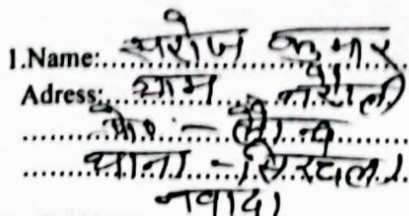 1.Name: सरोज कुमार
Adress: ग्राम
पो० -
थाना - सिरदला
नवादा